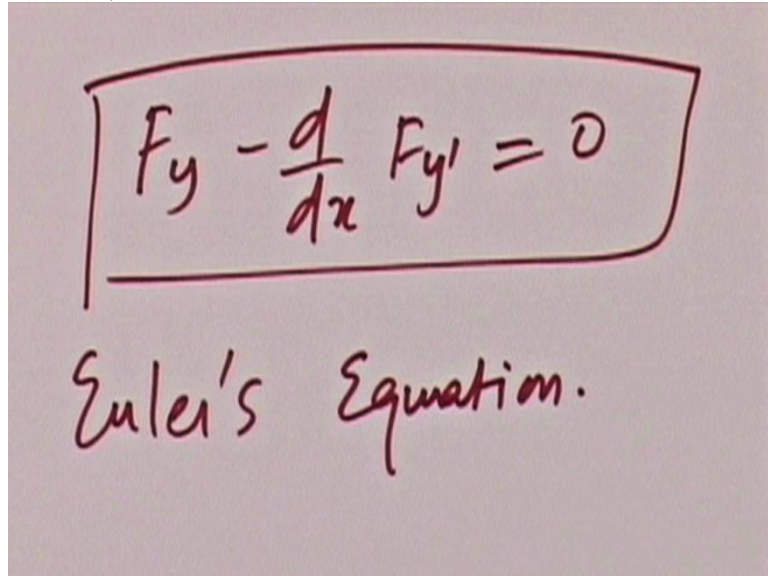 Fy - d/dx Fy' = 0
Euler's Equation.